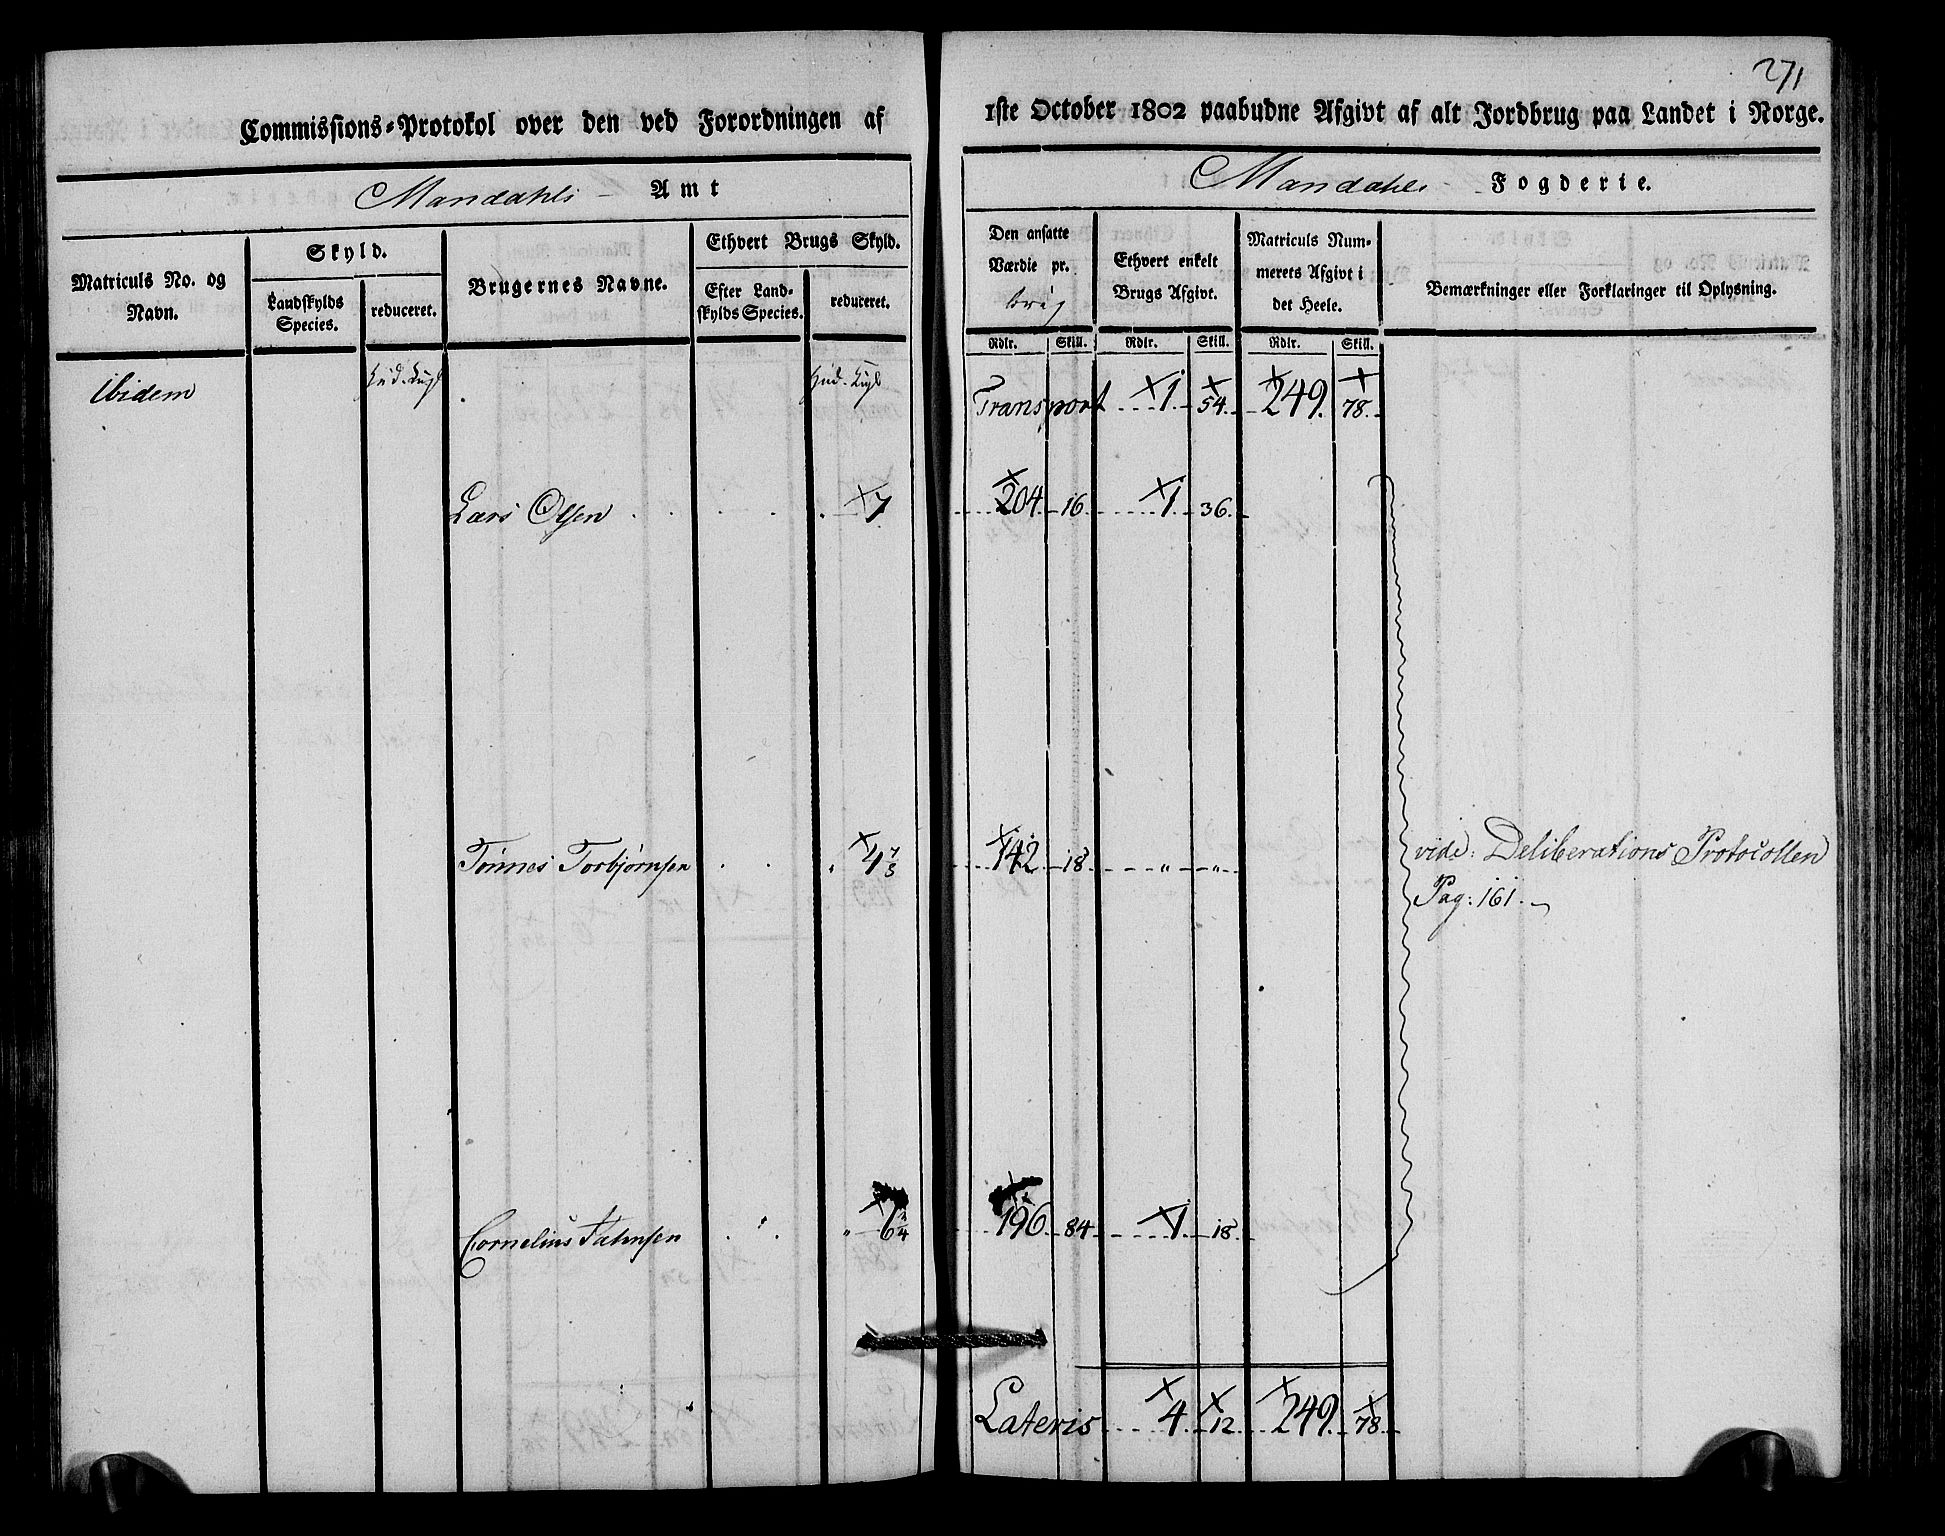 271
Commissions-Protokol over den ved Forordningen af 1ste October 1802 paabudne Afgivt af alt Jordbrug paa Landet i Norge.
Mandahls Amt
Mandahls Fogderie.
Matriculs No. og Navn.
Skyld.
Landskylds Species.
reduceret.
Brugernes Navne.
Ethvert Brugs Skyld.
Efter Landskylds Species.
reduceret.
Den ansatte Værdie pr.
Ethvert enkelt Brugs Afgivt.
Matriculs Nummerets Afgivt i det Heele.
Bemærkninger eller Forklaringer til Oplysning.
Rdlr. Skill. Rdlr. Skill. Rdlr. Skill.
Ibidem
Transport 1 54 249 78
Lars Olsen 7 204 16 1 36
Tønnes Torbjørnsen 4 142 18 " "
vide: Deliberations Protocollen
Pag: 161.
Cornelius 6 196 84 1 18
Lateris 4 12 249 78